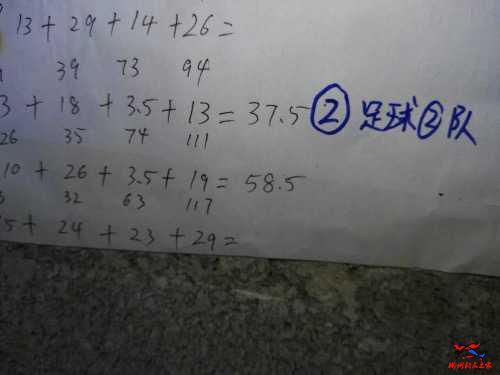 13 + 29 + 14 + 26 =
39 73 94
3 + 18 + 3.5 + 13 = 37.5 ② 足球②队
26 35 74 111
10 + 26 + 3.5 + 19 = 58.5
32 63 117
5 + 24 + 23 + 29 =